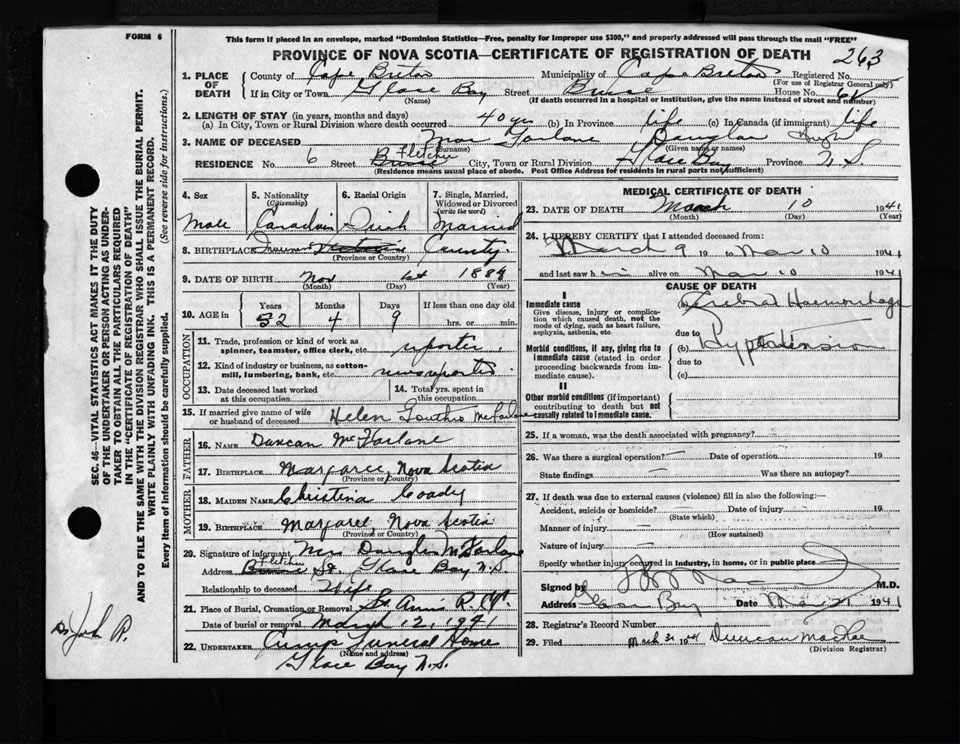 FORM 6
This form if placed in an envelope, marked "Dominion Statistics—Free, penalty for improper use $300," and properly addressed will pass through the mail "FREE"
PROVINCE OF NOVA SCOTIA—CERTIFICATE OF REGISTRATION OF DEATH 263
1. PLACE OF DEATH
County of Cape Breton Municipality of Cape Breton Registered No.
(For use of Registrar General only)
If in City or Town Glace Bay Street House No.
(Name) (If death occurred in a hospital or institution, give the name instead of street and number)
2. LENGTH OF STAY (in years, months and days)
(a) In City, Town or Rural Division where death occurred 40 yrs (b) In Province life (c) In Canada (if immigrant) life
3. NAME OF DECEASED MacFarlane Douglas Hugh
(Surname) (Given name or names)
RESIDENCE No. 6 Street Fletcher City, Town or Rural Division Glace Bay Province N.S.
(Residence means usual place of abode. Post Office Address for residents in rural parts not sufficient)
4. Sex
Male
5. Nationality
(Citizenship)
Canadian
6. Racial Origin
Irish
7. Single, Married, Widowed or Divorced
(write the word)
Married
8. BIRTHPLACE Inverness County
(Province or Country)
9. DATE OF BIRTH Nov 1st 1889
(Month) (Day) (Year)
10. AGE in
Years Months Days If less than one day old
52 4 9 hrs. or min.
OCCUPATION
11. Trade, profession or kind of work as spinner, teamster, office clerk, etc. reporter
12. Kind of industry or business, as cotton-mill, lumbering, bank, etc.
13. Date deceased last worked at this occupation
14. Total yrs. spent in this occupation
15. If married give name of wife or husband of deceased Helen McFarlane
FATHER
16. NAME Duncan McFarlane
17. BIRTHPLACE Margaree, Nova Scotia
(Province or Country)
MOTHER
18. MAIDEN NAME Christina Coady
19. BIRTHPLACE Margaree Nova Scotia
(Province or Country)
20. Signature of informant Mrs Douglas McFarlane
Address Fletcher St. Glace Bay N.S.
Relationship to deceased Wife
21. Place of Burial, Cremation or Removal St. Anns
Date of burial or removal March 12, 1941
22. UNDERTAKER Funeral Home
(Name and address)
Glace Bay N.S.
MEDICAL CERTIFICATE OF DEATH
23. DATE OF DEATH March 10 1941
(Month) (Day) (Year)
24. I HEREBY CERTIFY that I attended deceased from:
March 9 19 to Mar 10 1941
and last saw him alive on Mar 10 1941
CAUSE OF DEATH
I
Immediate cause
Give disease, injury or complication which caused death, not the mode of dying, such as heart failure, asphyxia, asthenia, etc.
(a) Cerebral Haemorrhage
due to
Morbid conditions, if any, giving rise to immediate cause (stated in order proceeding backwards from immediate cause).
(b) Hypertension
due to
(c)
II
Other morbid conditions (if important) contributing to death but not causally related to immediate cause.
25. If a woman, was the death associated with pregnancy?
26. Was there a surgical operation? Date of operation 19
State findings Was there an autopsy?
27. If death was due to external causes (violence) fill in also the following:—
Accident, suicide or homicide? Date of injury 19
(State which)
Manner of injury
(How sustained)
Nature of injury
Specify whether injury occurred in industry, in home, or in public place
Signed by M.D.
Address Glace Bay Date Mar 21 1941
28. Registrar's Record Number
29. Filed March 31 1941 Duncan MacRae
(Division Registrar)
SEC. 46—VITAL STATISTICS ACT MAKES IT THE DUTY OF THE UNDERTAKER OR PERSON ACTING AS UNDERTAKER TO OBTAIN ALL THE PARTICULARS REQUIRED IN THE "CERTIFICATE OF REGISTRATION OF DEATH"
AND TO FILE THE SAME WITH THE DIVISION REGISTRAR WHO SHALL ISSUE THE BURIAL PERMIT.
WRITE PLAINLY WITH UNFADING INK. THIS IS A PERMANENT RECORD.
Every item of Information should be carefully supplied. (See reverse side for instructions.)
John R.